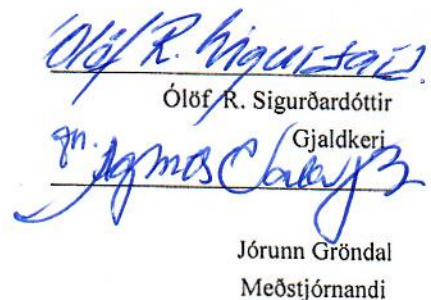 Ólöf R.
Ólöf R. Sigurðardóttir
Gjaldkeri
Jórunn Gröndal
Meðstjórnandi